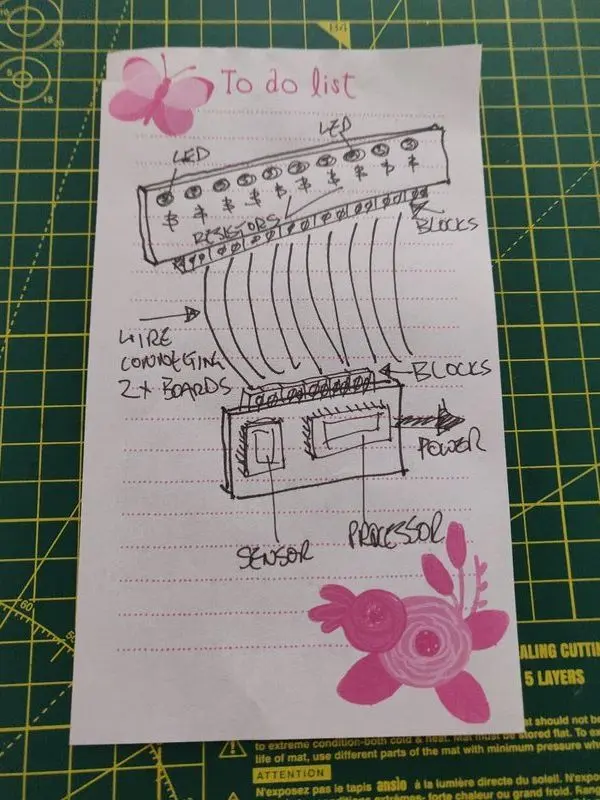 To do list
LED
LED
RESISTORS
BLOCKS
WIRE
CONNECTING
2x BOARDS
BLOCKS
POWER
SENSOR
PROCESSOR
ALING CUTTIN
5 LAYERS
at should not be
to extreme condition-both cold & heat. Mat must be stored flat. To ex
life of mat, use different parts of the mat with minimum pressure whe
ATTENTION
N'exposez pas le tapis anslo à la lumière directe du soleil. N'expose
conditions extrêmes- forte chaleur ou grand froid. Rang